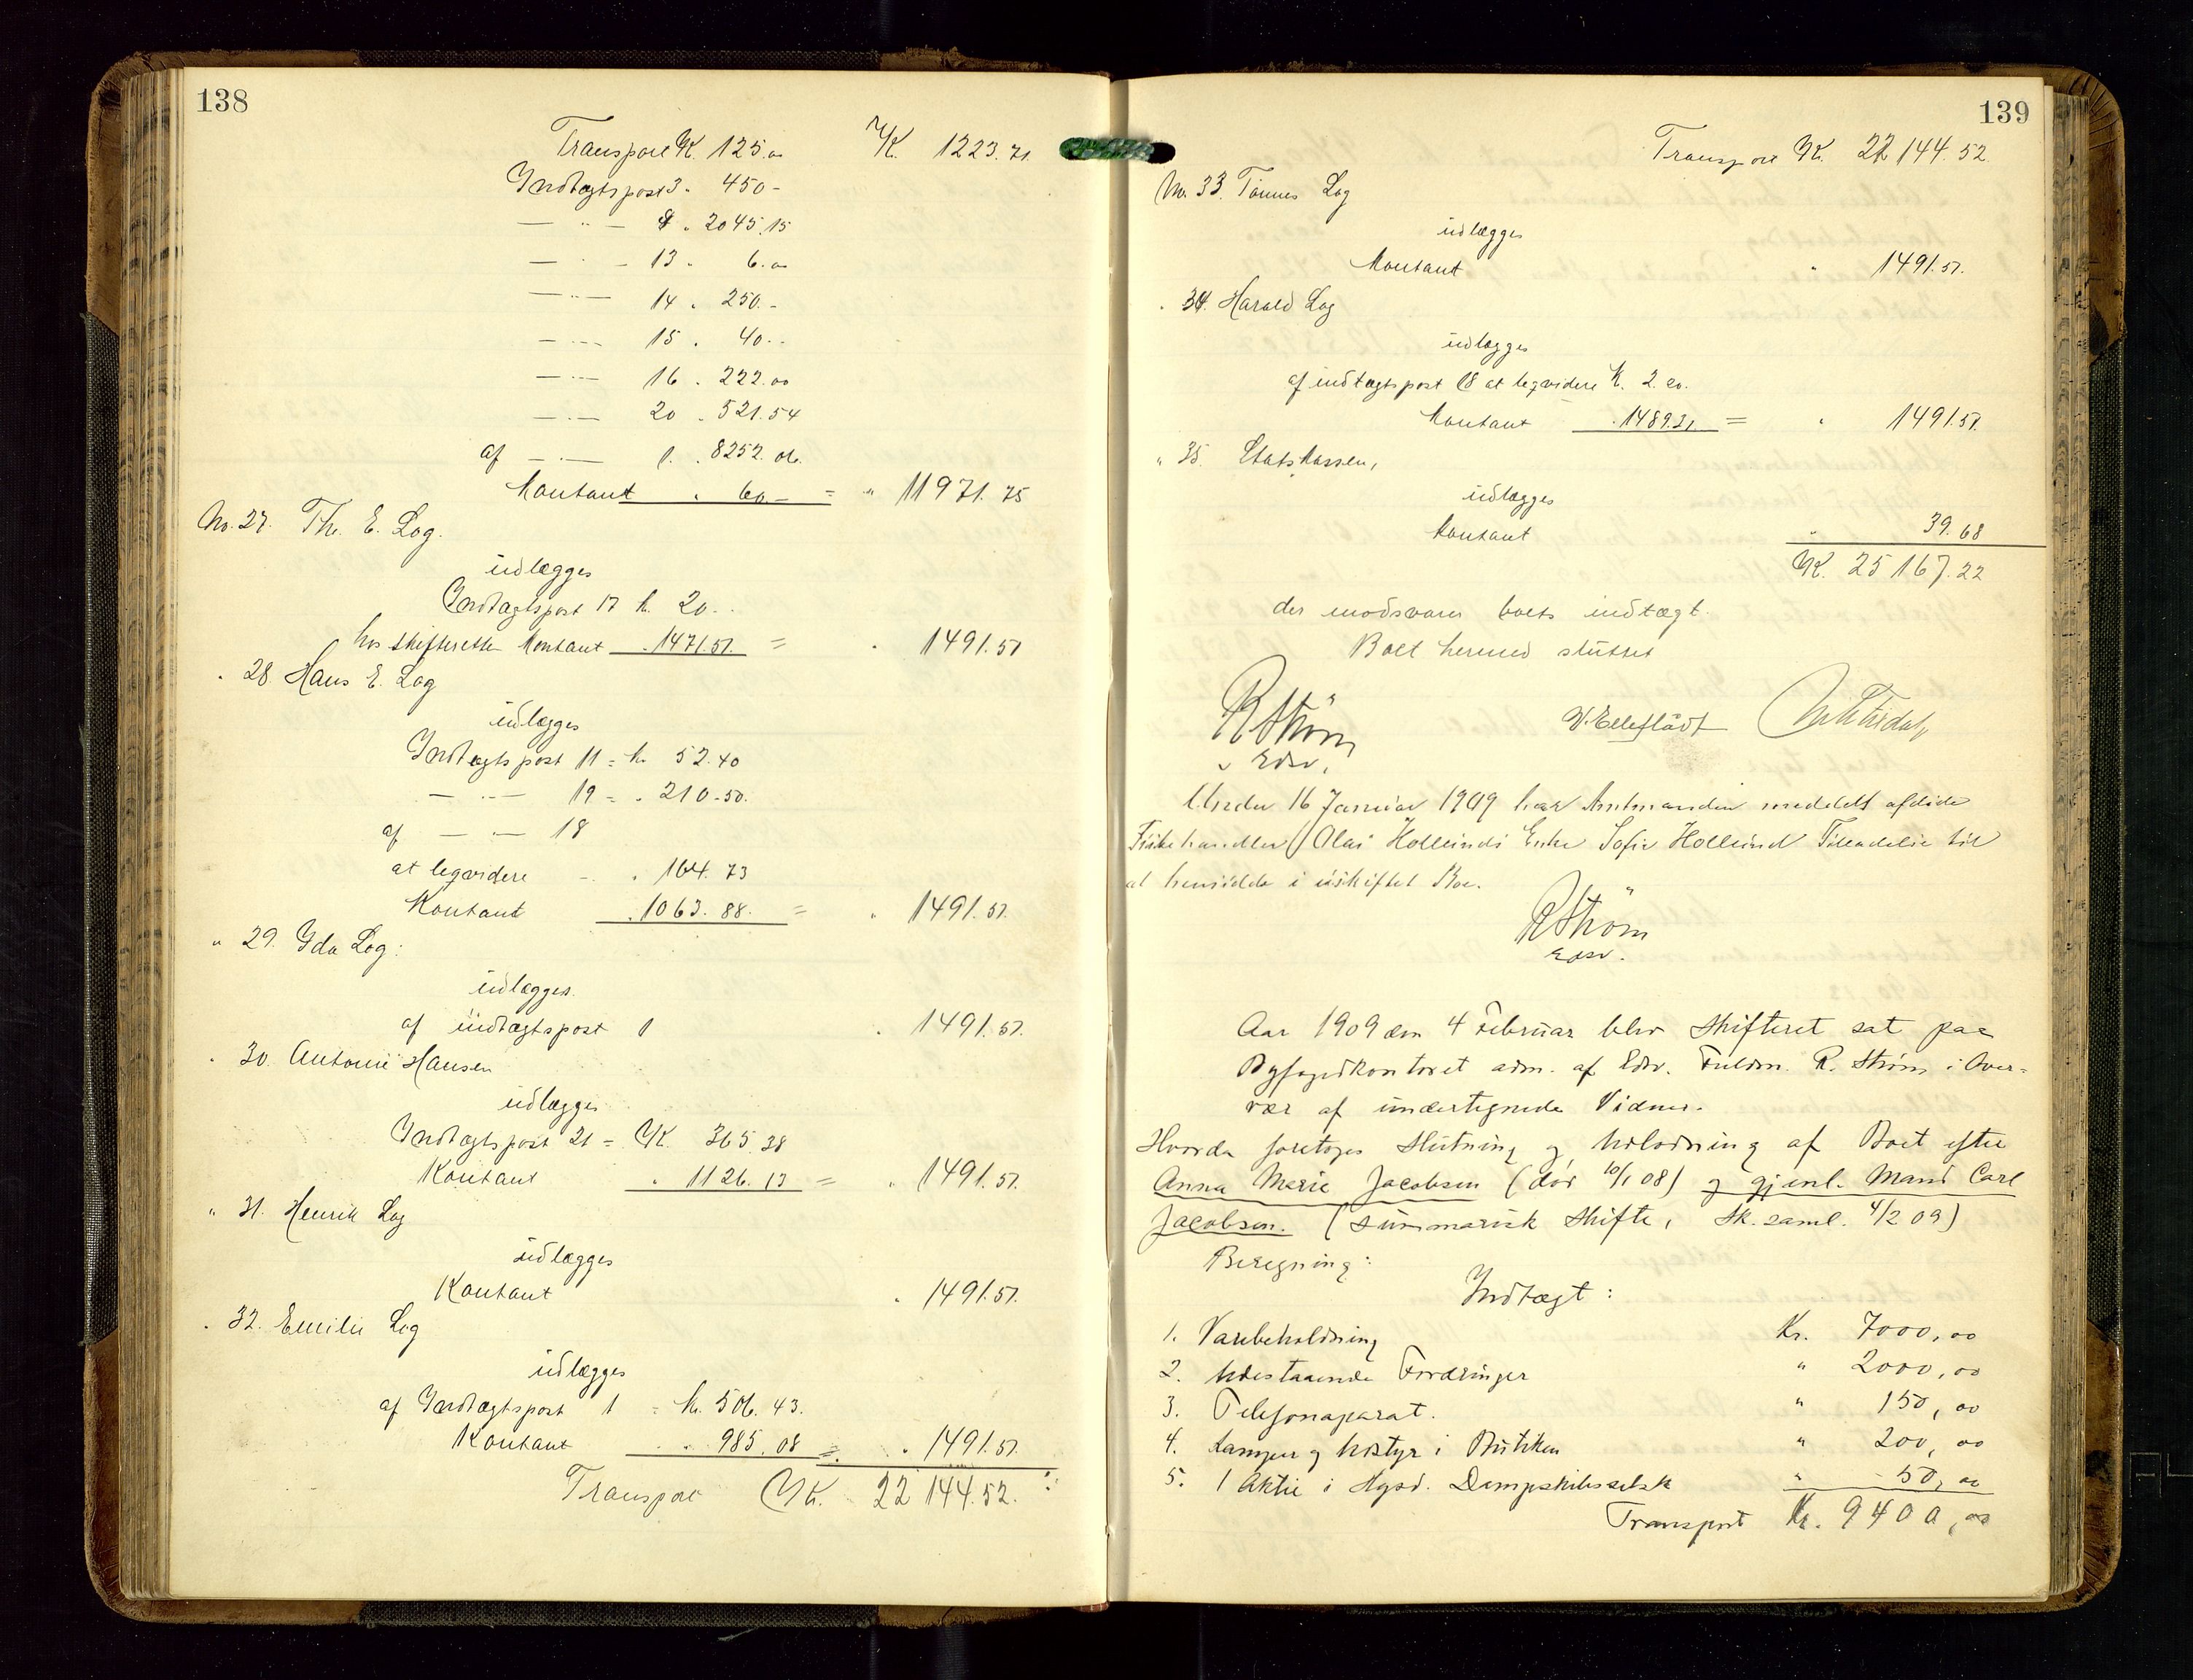 138
Transport Kr. 125.00 Kr. 1223.71
Indtægtspost 3. 450 -
— " — 8 . 2045.15
— " — 13 . 6.00
— " — 14 . 250.-
— " — 15 . 40.-
— " — 16 . 222.00
— " — 20 . 521.54
af — " — 1. . 8252.06.
Kontant . 60.- = " 11971.75
No. 27. Th. E. Log.
udlægges
Indtægtspost 17 kr. 20..
hos skifteretten Kontant . 1471.51. = . 1491.51
" 28. Hans E. Log
udlægges
Indtægtspost 11 = kr. 52.40
— " — 19 = . 210.50.
af — " — 18
at legvidere - . 164.73
Kontant . 1063.88. = " 1491.51.
" 29. Ida Log:
udlægges.
af indtægtspost 1 . 1491.51.
" 30. Antonie Hansen
udlægges
Indtægtspost 21 = Kr. 365.38
Kontant . 1126.13 = " 1491.51.
" 31. Henrik Log
udlægges
Kontant . 1491.51.
" 32. Emilie Log
udlægges
af Indtægtspost 1 = kr. 506.43.
Kontant . 985.08 = . 1491.51.
Transport Kr. 22144.52.
139
Transport Kr. 22144.52.
No. 33. Tønnes Log
udlægges
Kontant " 1491.51.
" 34. Harald Log
udlægges
af indtægtspost 18 at legvidere K. 2.20.
Kontant . 1489.31 = " 1491.51.
" 35. Statskassen,
udlægges
Kontant " 39.68
Kr. 25167.22
der modsvarer boets indtægt.
Boet hermed sluttet
RStrøm
Edsv.
Under 16 Januar 1909 har Amtmanden meddelt afdøde
Fiskehandler Olai Hollunds Enke Sofie Hollund Tilladelse til
at hensidde i uskiftet Bo.
RStrøm
Edsv.
Aar 1909 den 4 Februar blev Skifteret sat paa
Byfogedkontoret adm. af Edsv. Fuldm. R. Strøm i Over-
vær af undertegnede Vidner.
Hvorda foretoges Slutning og Udlodning af Boet efter
Anna Marie Jacobsen (død 10/1 08) og gjenl. Mand Carl
Jacobsen. (Summarisk Skifte, Sk. saml. 4/2 09)
Beregning:
Indtægt:
1. Varebeholdning Kr. 7000,00
2. Udestaaende Fordringer " 2000,00
3. Telefonaparat. " 150,00
4. Lamper og Udstyr i Butiken " 200,00
5. 1 Aktie i Hgsd. Dampskibsselsk " 50,00
Transport Kr. 9400,00